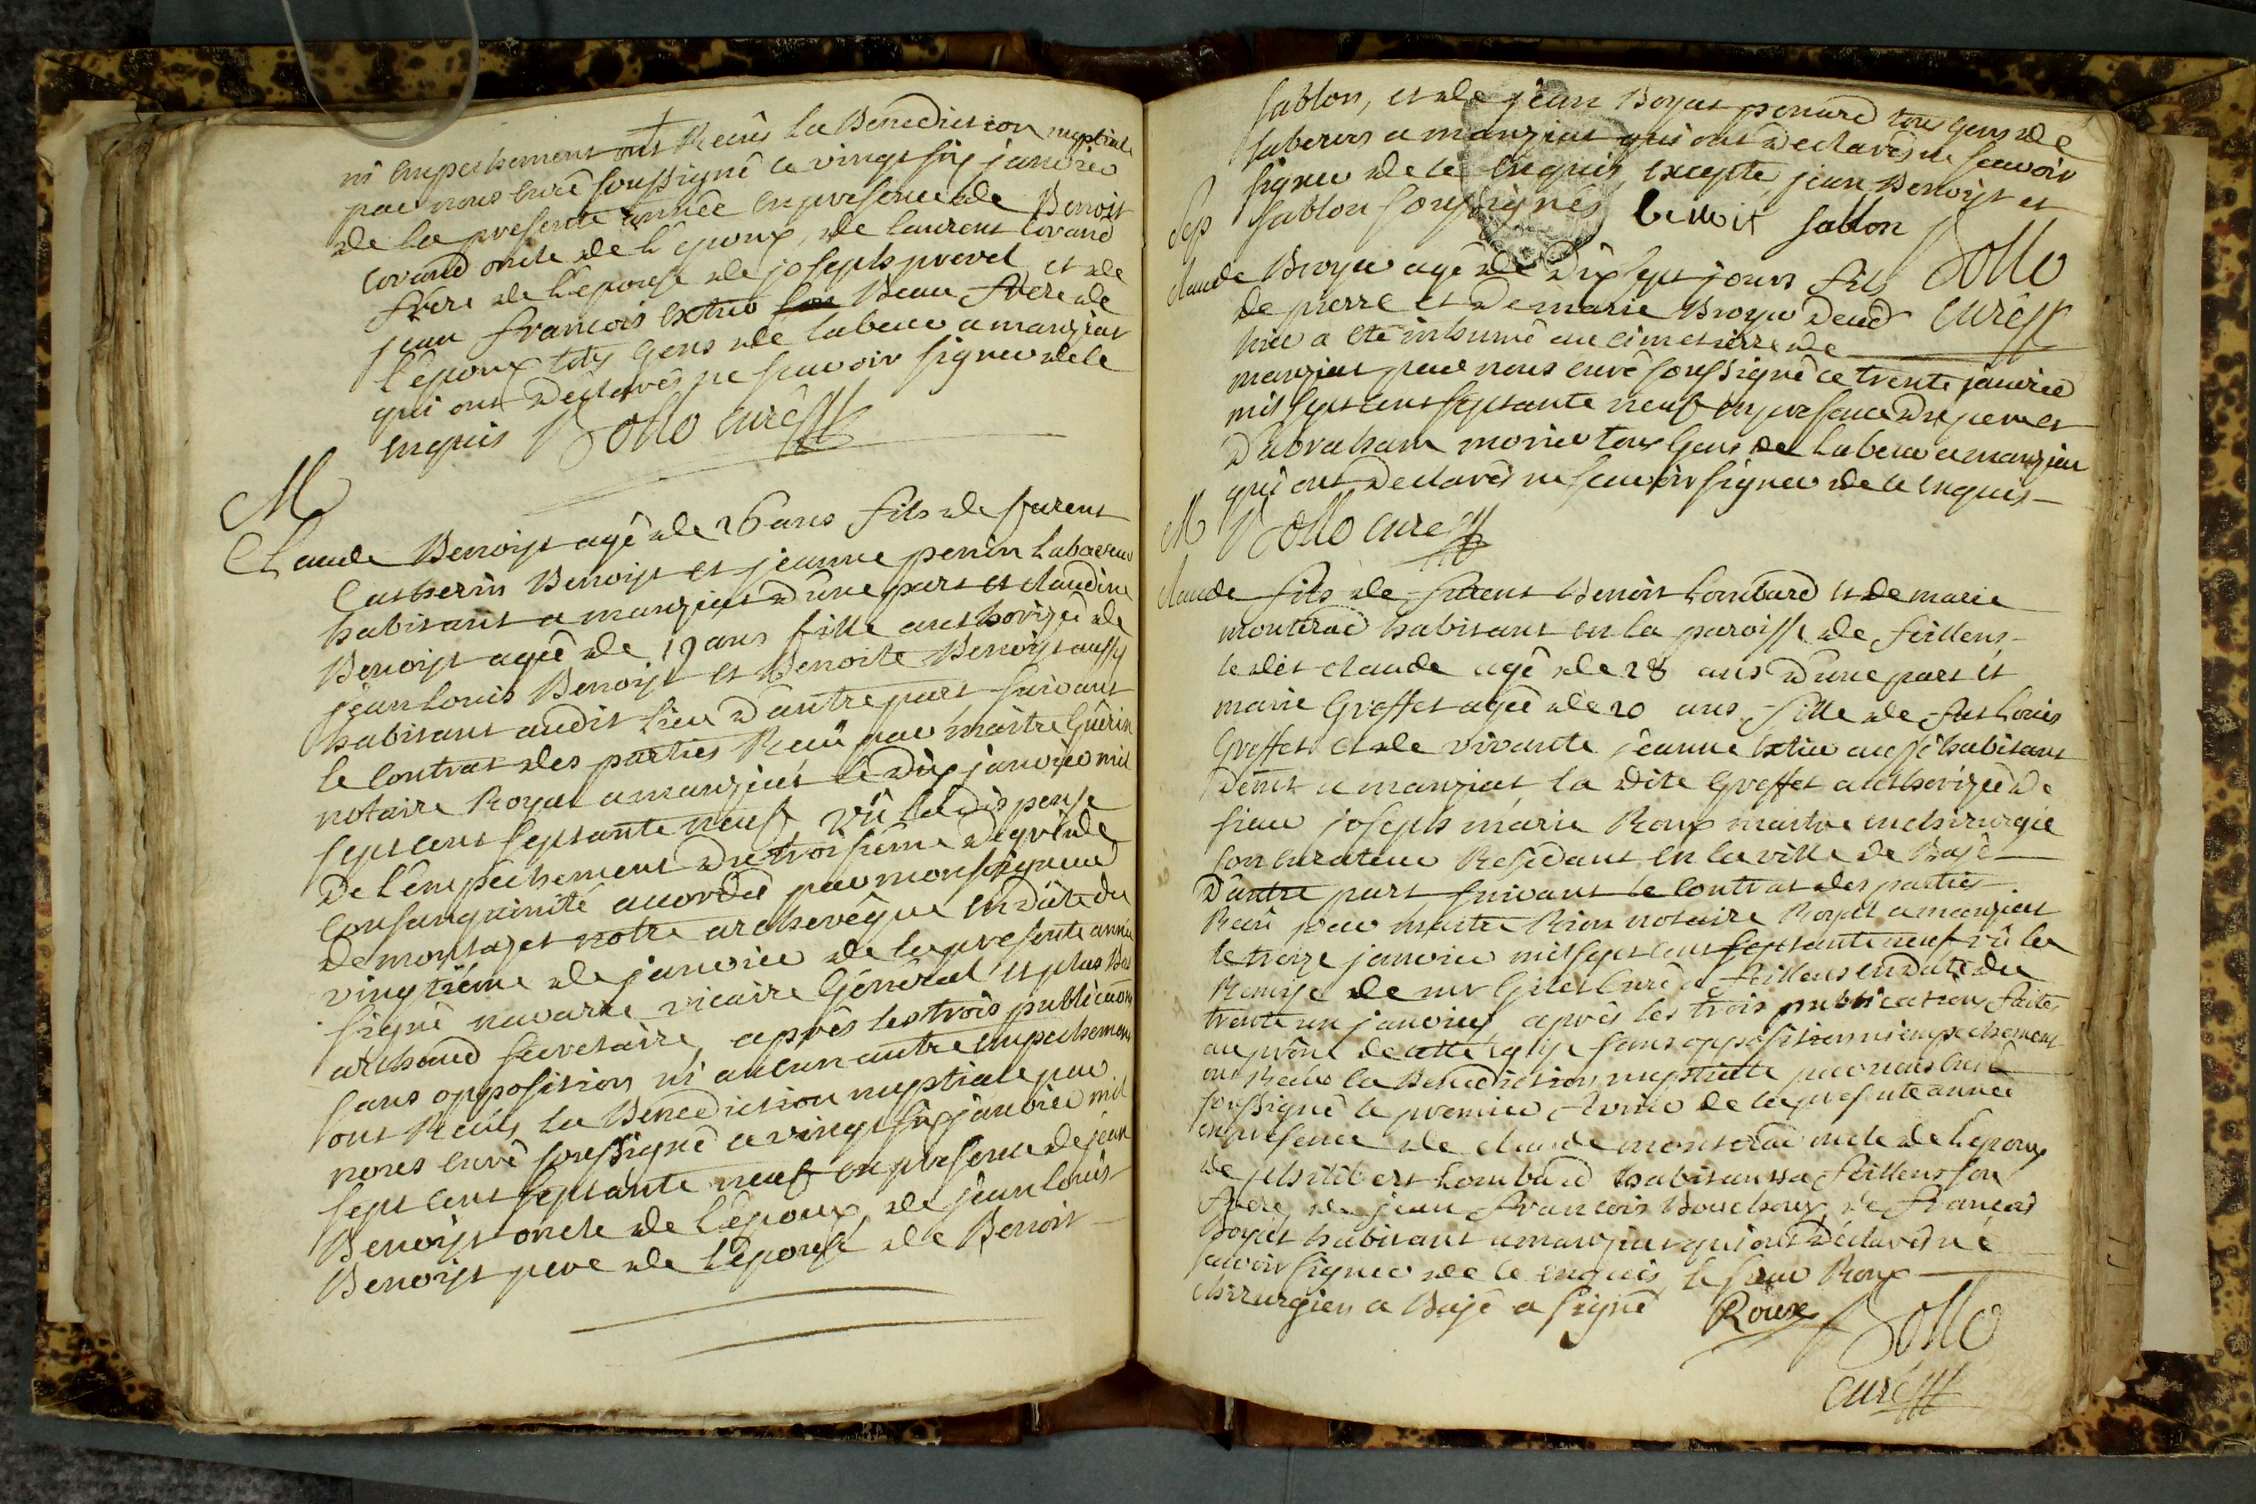 ni empechement ont Recûs la Benediction nuptiale
par nous curé soussigné ce vingt six janvier
de la presente année en presence de Benoit
Corand oncle de l'époux, de laurent Corand
frere de l'epouse de joseph prevel et de
jean francois extier son Beau frere de
l'époux tous Gens de labeur a manziat
qui ont declarés ne scavoir signer de ce
enquis Bollo curé
M
Claude Benoist agé de 26 ans fils de furent
Catherin Benoist et jeanne penin laboureur
habitant a manziat d'une part et claudine
Benoist agée de 19 ans fille authorizée de
jean louis Benoist et Benoite Benoist aussy
habitant audit lieu d'autre part suivant
le contrat des parties Recû par maitre Guérin
notaire Royal a manziat le dix janvier mil
sept cent septante neuf vû la dispense
de l'empechement du troisiéme degré de
Consanguinité accordée par monseigneur
de montazet notre archevêque en date du
vingtiéme de janvier de la presente année
signé navarre vicaire Général et plus Bas
archaud secretaire, après les trois publications
sans opposition ni aucun autre empechement
ont Recûs la Benediction nuptiale par
nous curé soussigné ce vingt six janvier mil
sept cent septante neuf en presence de jean
Benoist oncle de l'époux, de jean louis
Benoist pere de l'épouse de Benoit
sablon, et de jean Boyat penard tous gens de
labeurs a manziat qui ont declarés ne scavoir
signer de ce enquis, excepté jean Benoist et
sablon soussignés benoit sablon
Sep Bollo
claude Broyer agé de dix sept jours fils curé
de pierre et de marie Broyer dud
lieu a été inhumé au cimetierre de
manziat par nous curé soussigné ce trente janvier
mil sept cent septante neuf en presence du pere et
d'abraham morier tous Gens de labeur a manziat
qui ont declarés ne scavoir signer de ce enquis
M Bollo curé
claude fils de furent Benoit Lombard et de marie
monterat habitant en la paroisse de feillens
ledit claude agé de 28 ans d'une part et
marie Greffet agée de 20 ans fille de fut Louis
Greffet et de vivante jeanne extier aussi habitant
a manziat la dite Greffet authorizée de
sieur joseph marie Roux maitre en chirurgie
son curateur Residant en la ville de Bagé
d'autre part suivant le contrat des parties
Recû par maitre notaire Royal a manziat
le treize janvier mil sept cent septante neuf vû la
Remise de mr Curé a feillens en date du
trente un janvier, après les trois publication faites
au prône de cette eglise sans opposition ni empechement
ont Recûs la Benediction nuptiale par nous curé
soussigné le premier fevrier de la presente année
en presence de claude monterat oncle de l'époux
de philibert Lombard habitant a feillens son
frere, de jean francois Bouchoux de francois
Boyat habitant a manziat qui ont déclarés ne
scavoir signer de ce enquis, le sieur Roux
chirurgien a Bagé a signé Roux Bollo
curé